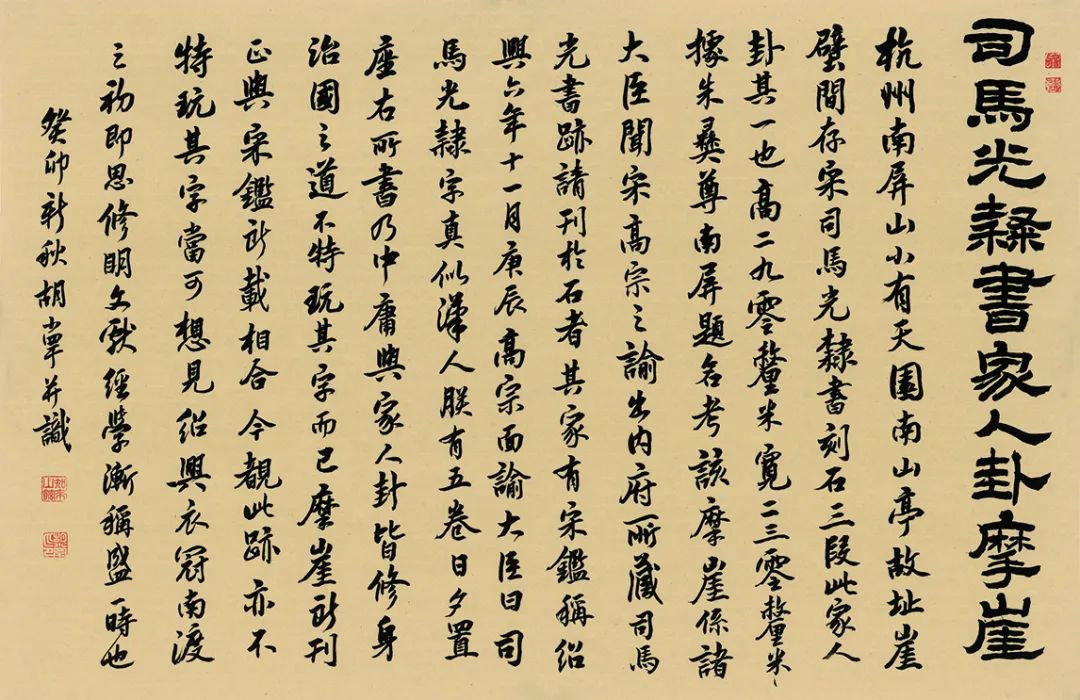 司馬光隸書家人卦摩崖
杭州南屏山小有天園南山亭故址崖
壁間存宋司馬光隸書刻石三段此家人
卦其一也高二九零釐米寬二三零釐米
據朱彝尊南屏題名考該摩崖係諸
大臣聞宋高宗之諭出內府所藏司馬
光書跡請刊於石者其家有宋鑑稱紹
興六年十一月庚辰高宗面諭大臣曰司
馬光隸字真似漢人朕有五卷日夕置
座右所書乃中庸與家人卦皆修身
治國之道不特玩其字而已摩崖所刊
正與宋鑑所載相合今觀此跡亦不
特玩其字當可想見紹興衣冠南渡
之初即思修明文獻經學漸稱盛一時也
癸卯新秋胡 并識